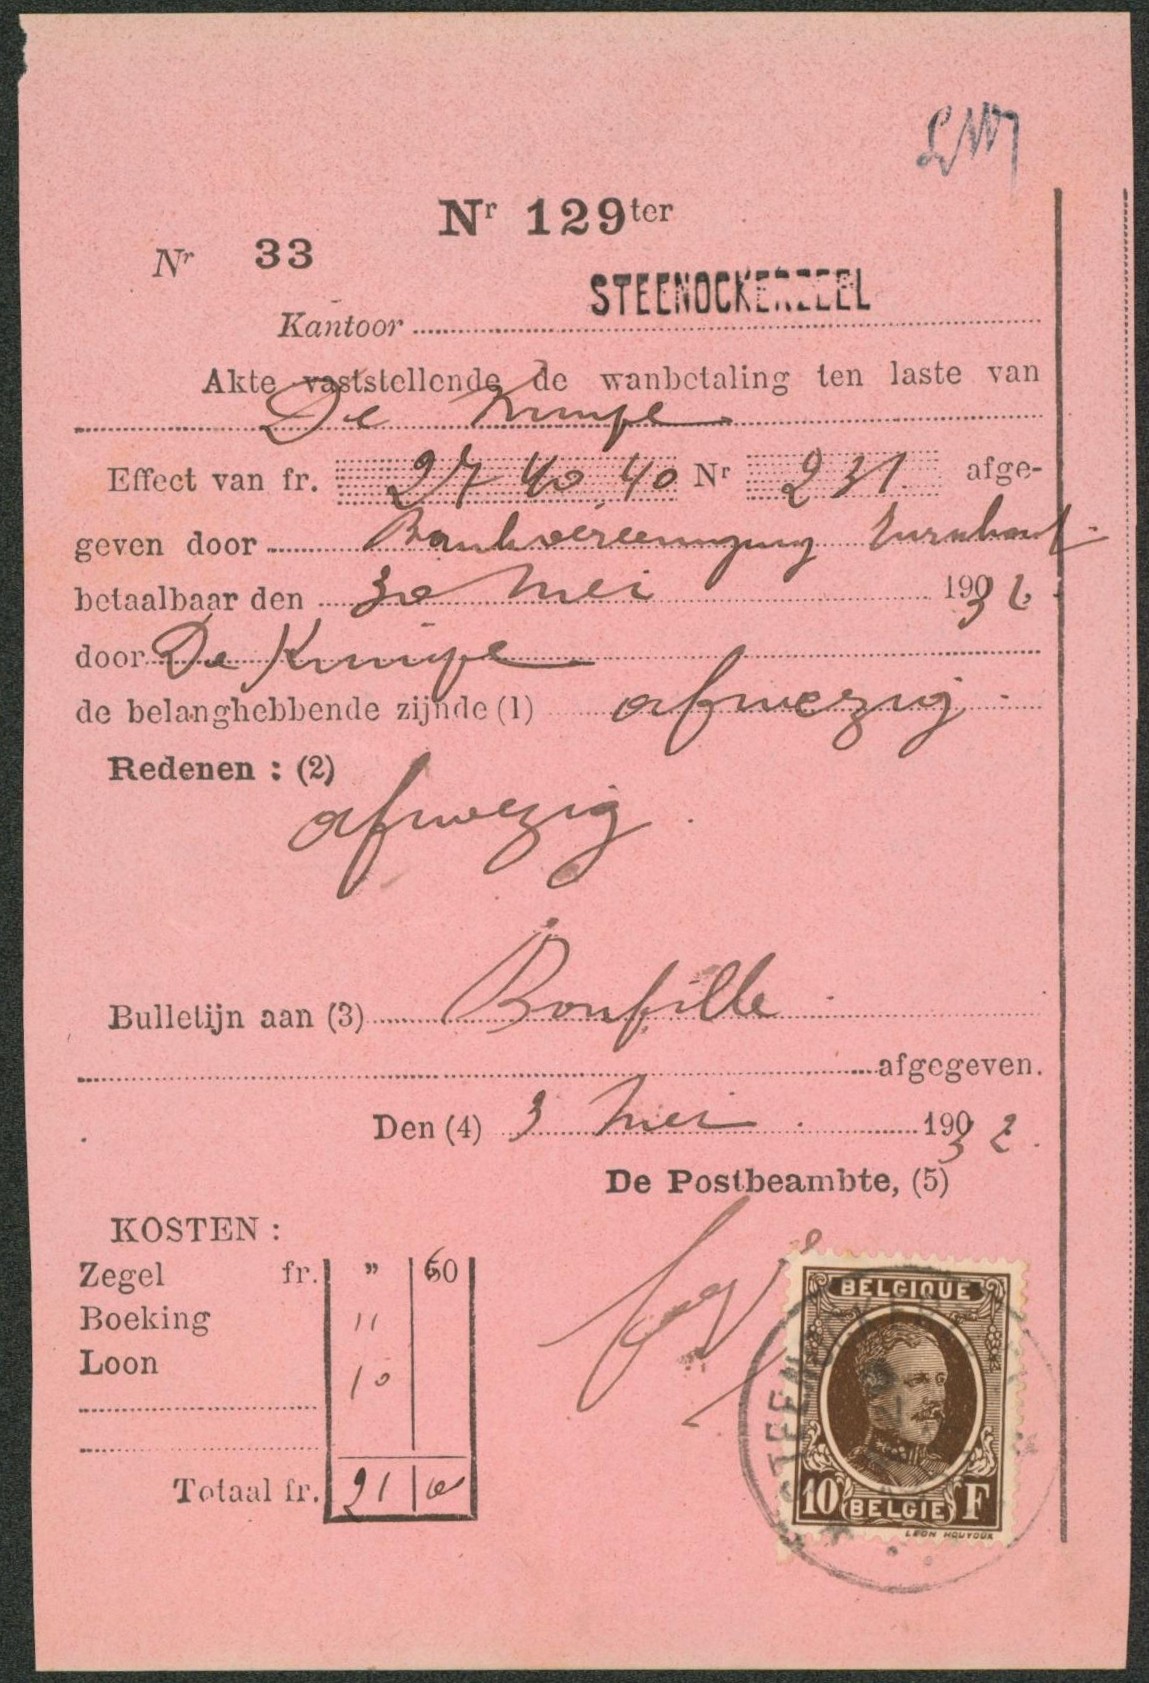 Nr 129ter
Nr 33
STEENOCKERZEEL
Kantoor
Akte vaststellende de wanbetaling ten laste van
De Knuype
Effect van fr. 2740,40 Nr 231. afge-
geven door Bankvereeniging Turnhout
betaalbaar den 30 Mei 1932
door De Knuype
de belanghebbende zijnde (1) afwezig.
Redenen : (2)
afwezig.
Bulletijn aan (3) Bonfille
afgegeven.
Den (4) 3 Mei 1932.
De Postbeambte, (5)
KOSTEN :
Zegel fr. " 60
Boeking 11
Loon 10
Totaal fr. 21
BELGIQUE
10 BELGIE F
LEON HOUYOUX